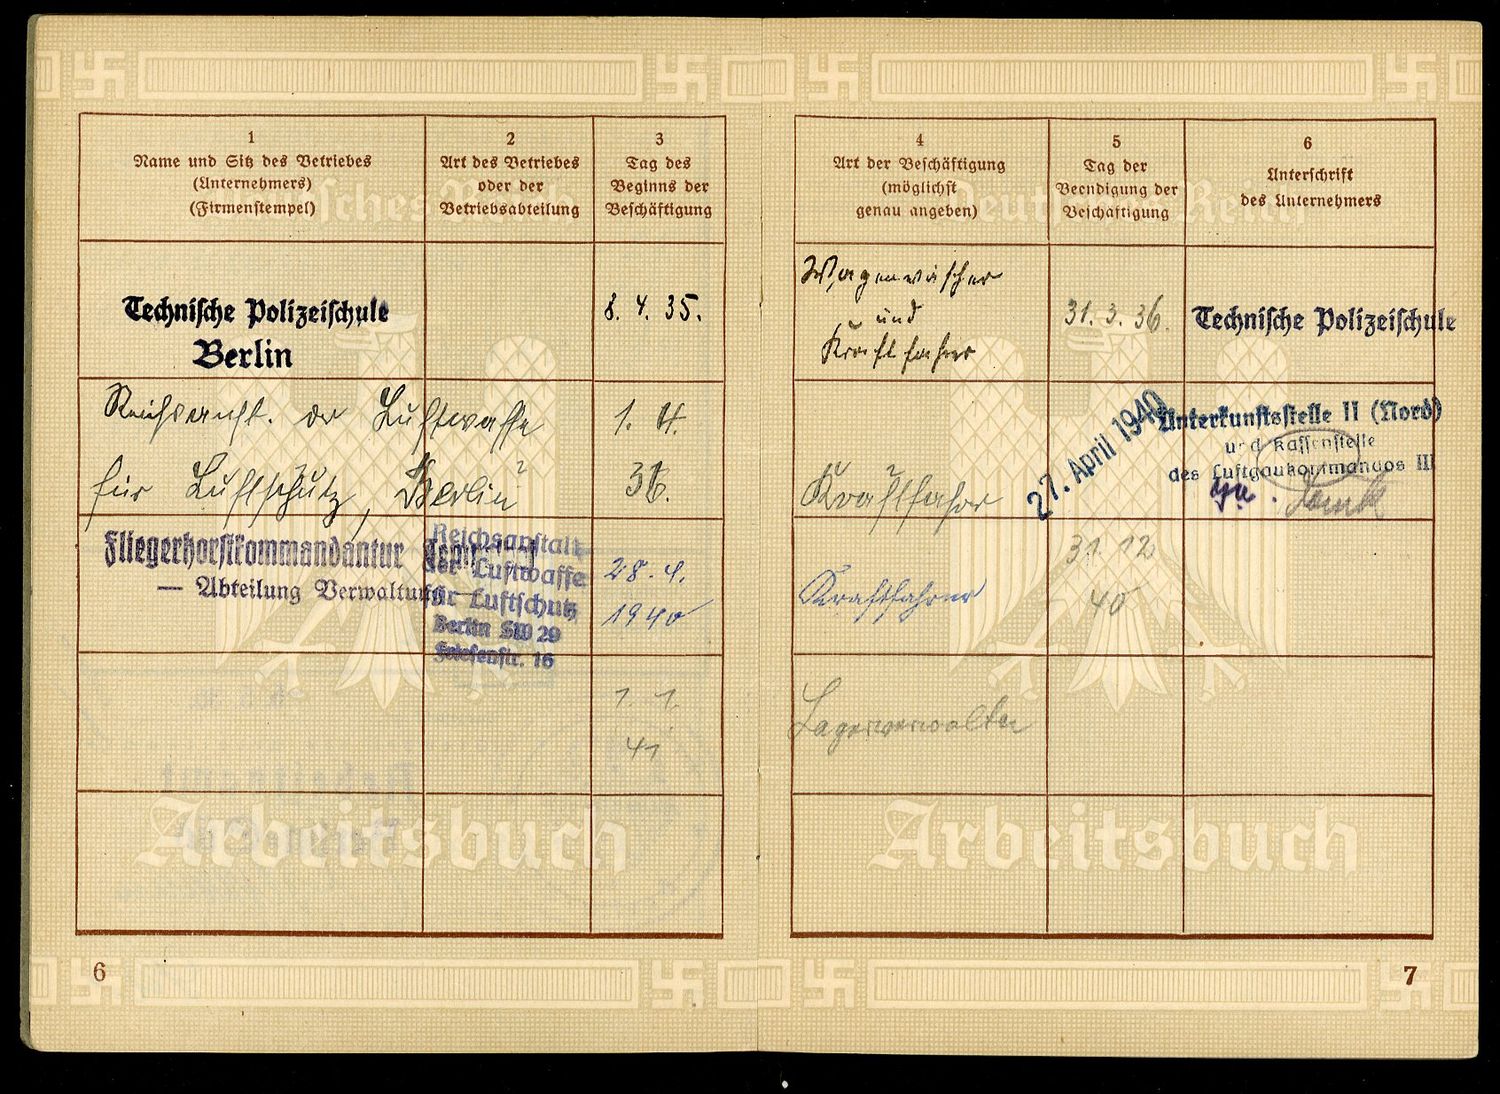 1
Name und Sitz des Betriebes
(Unternehmers)
(Firmenstempel)
2
Art des Betriebes
oder der
Betriebsabteilung
3
Tag des
Beginns der
Beschäftigung
Technische Polizeischule
Berlin
8. 4. 35.
Reichsanst. der Luftwaffe
für Luftschutz, Berlin
1. 4.
36.
Fliegerhorstkommandantur
— Abteilung Verwaltung
Reichsanstalt
der Luftwaffe
für Luftschutz
Berlin SW 29
Friesenstr. 16
28. 4.
1940
1. 1.
41
Arbeitsbuch
6
4
Art der Beschäftigung
(möglichst
genau angeben)
5
Tag der
Beendigung der
Beschäftigung
6
Unterschrift
des Unternehmers
Deutsches Reich
Wagenwäscher
und
Kraftfahrer
31. 3. 36.
Technische Polizeischule
Kraftfahrer
27. April 1940
Unterkunftsstelle II (Nord)
und Kassenstelle
des Luftgaukommandos III
Kraftfahrer
31. 12
40
Lagerverwalter
Arbeitsbuch
7